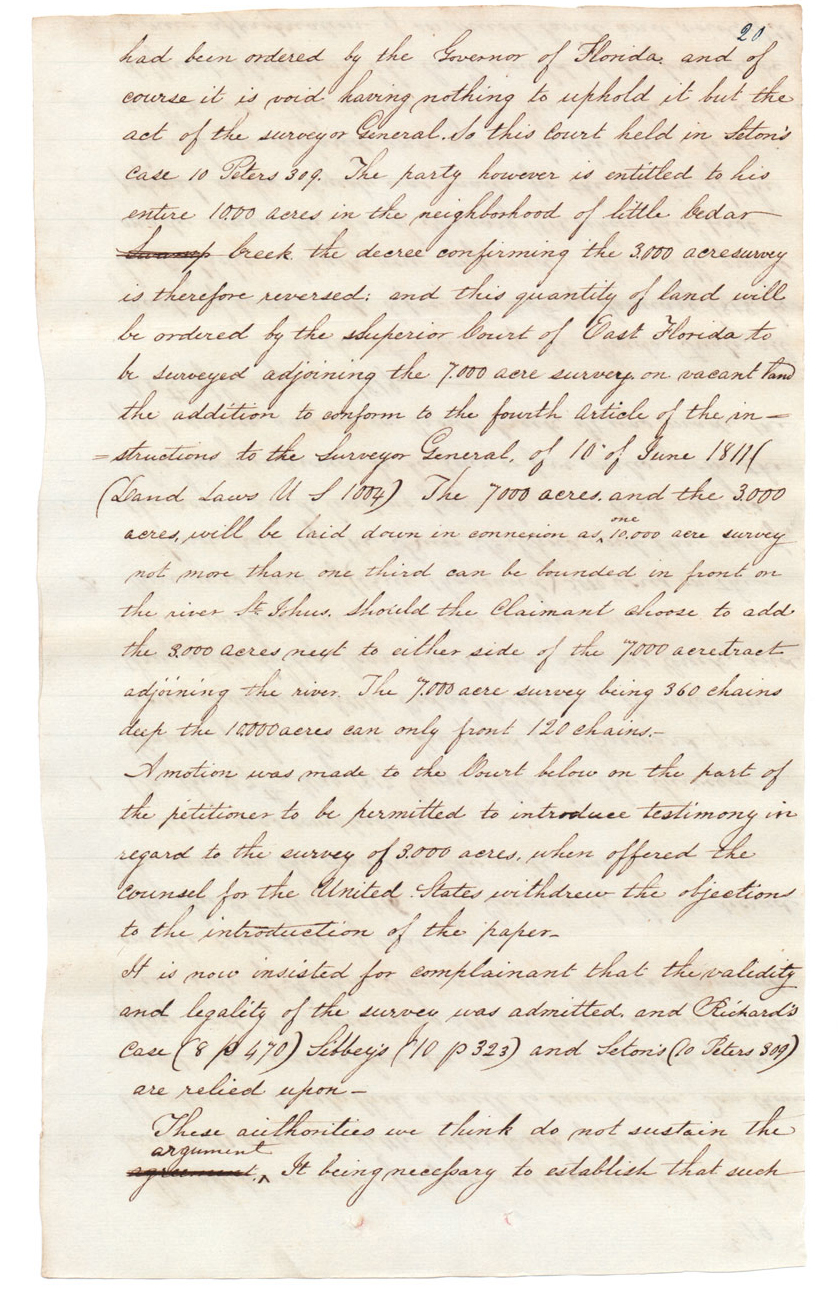 20
had been ordered by the Governor of Florida. and of
course it is void having nothing to uphold it but the
act of the surveyor General. So this Court held in Seton's
case 10 Peters 309. The party however is entitled to his
entire 10.00 acres in the neighborhood of little Cedar
Swamp Creek. the decree confirming the 3.000 acre survey
is therefore reversed; and this quantity of land will
be ordered by the Superior Court of East Florida to
be surveyed adjoining the 7.000 acre survey. on vacant land
the addition to conform to the fourth article of the in=
=structions to the Surveyor General, of 10th of June 1811 (
(Land Laws U S 1004) The 7000 acres. and the 3.000
acres, will be laid down in connexion as one 10.000 acre survey
not more than one third can be bounded in front on
the river St Johns. should the Claimant choose to add
the 3.000 acres next to either side of the 7.000 acre tract
adjoining the river. The 7.000 acre survey being 360 chains
deep the 10.000 acres can only front 120 chains.-
A motion was made to the Court below on the part of
the petitioner to be permitted to introduce testimony in
regard to the survey of 3.000 acres, when offered the
counsel for the United States withdrew the objections
to the introduction of the paper-
It is now insisted for complainant that the validity
and legality of the survey was admitted. and Richard's
case (8 p 470) Sibbey's (10 p 323) and Seton's (10 Peters 309)
are relied upon-
These authorities we think do not sustain the
argument
agreement. It being necessary to establish that such